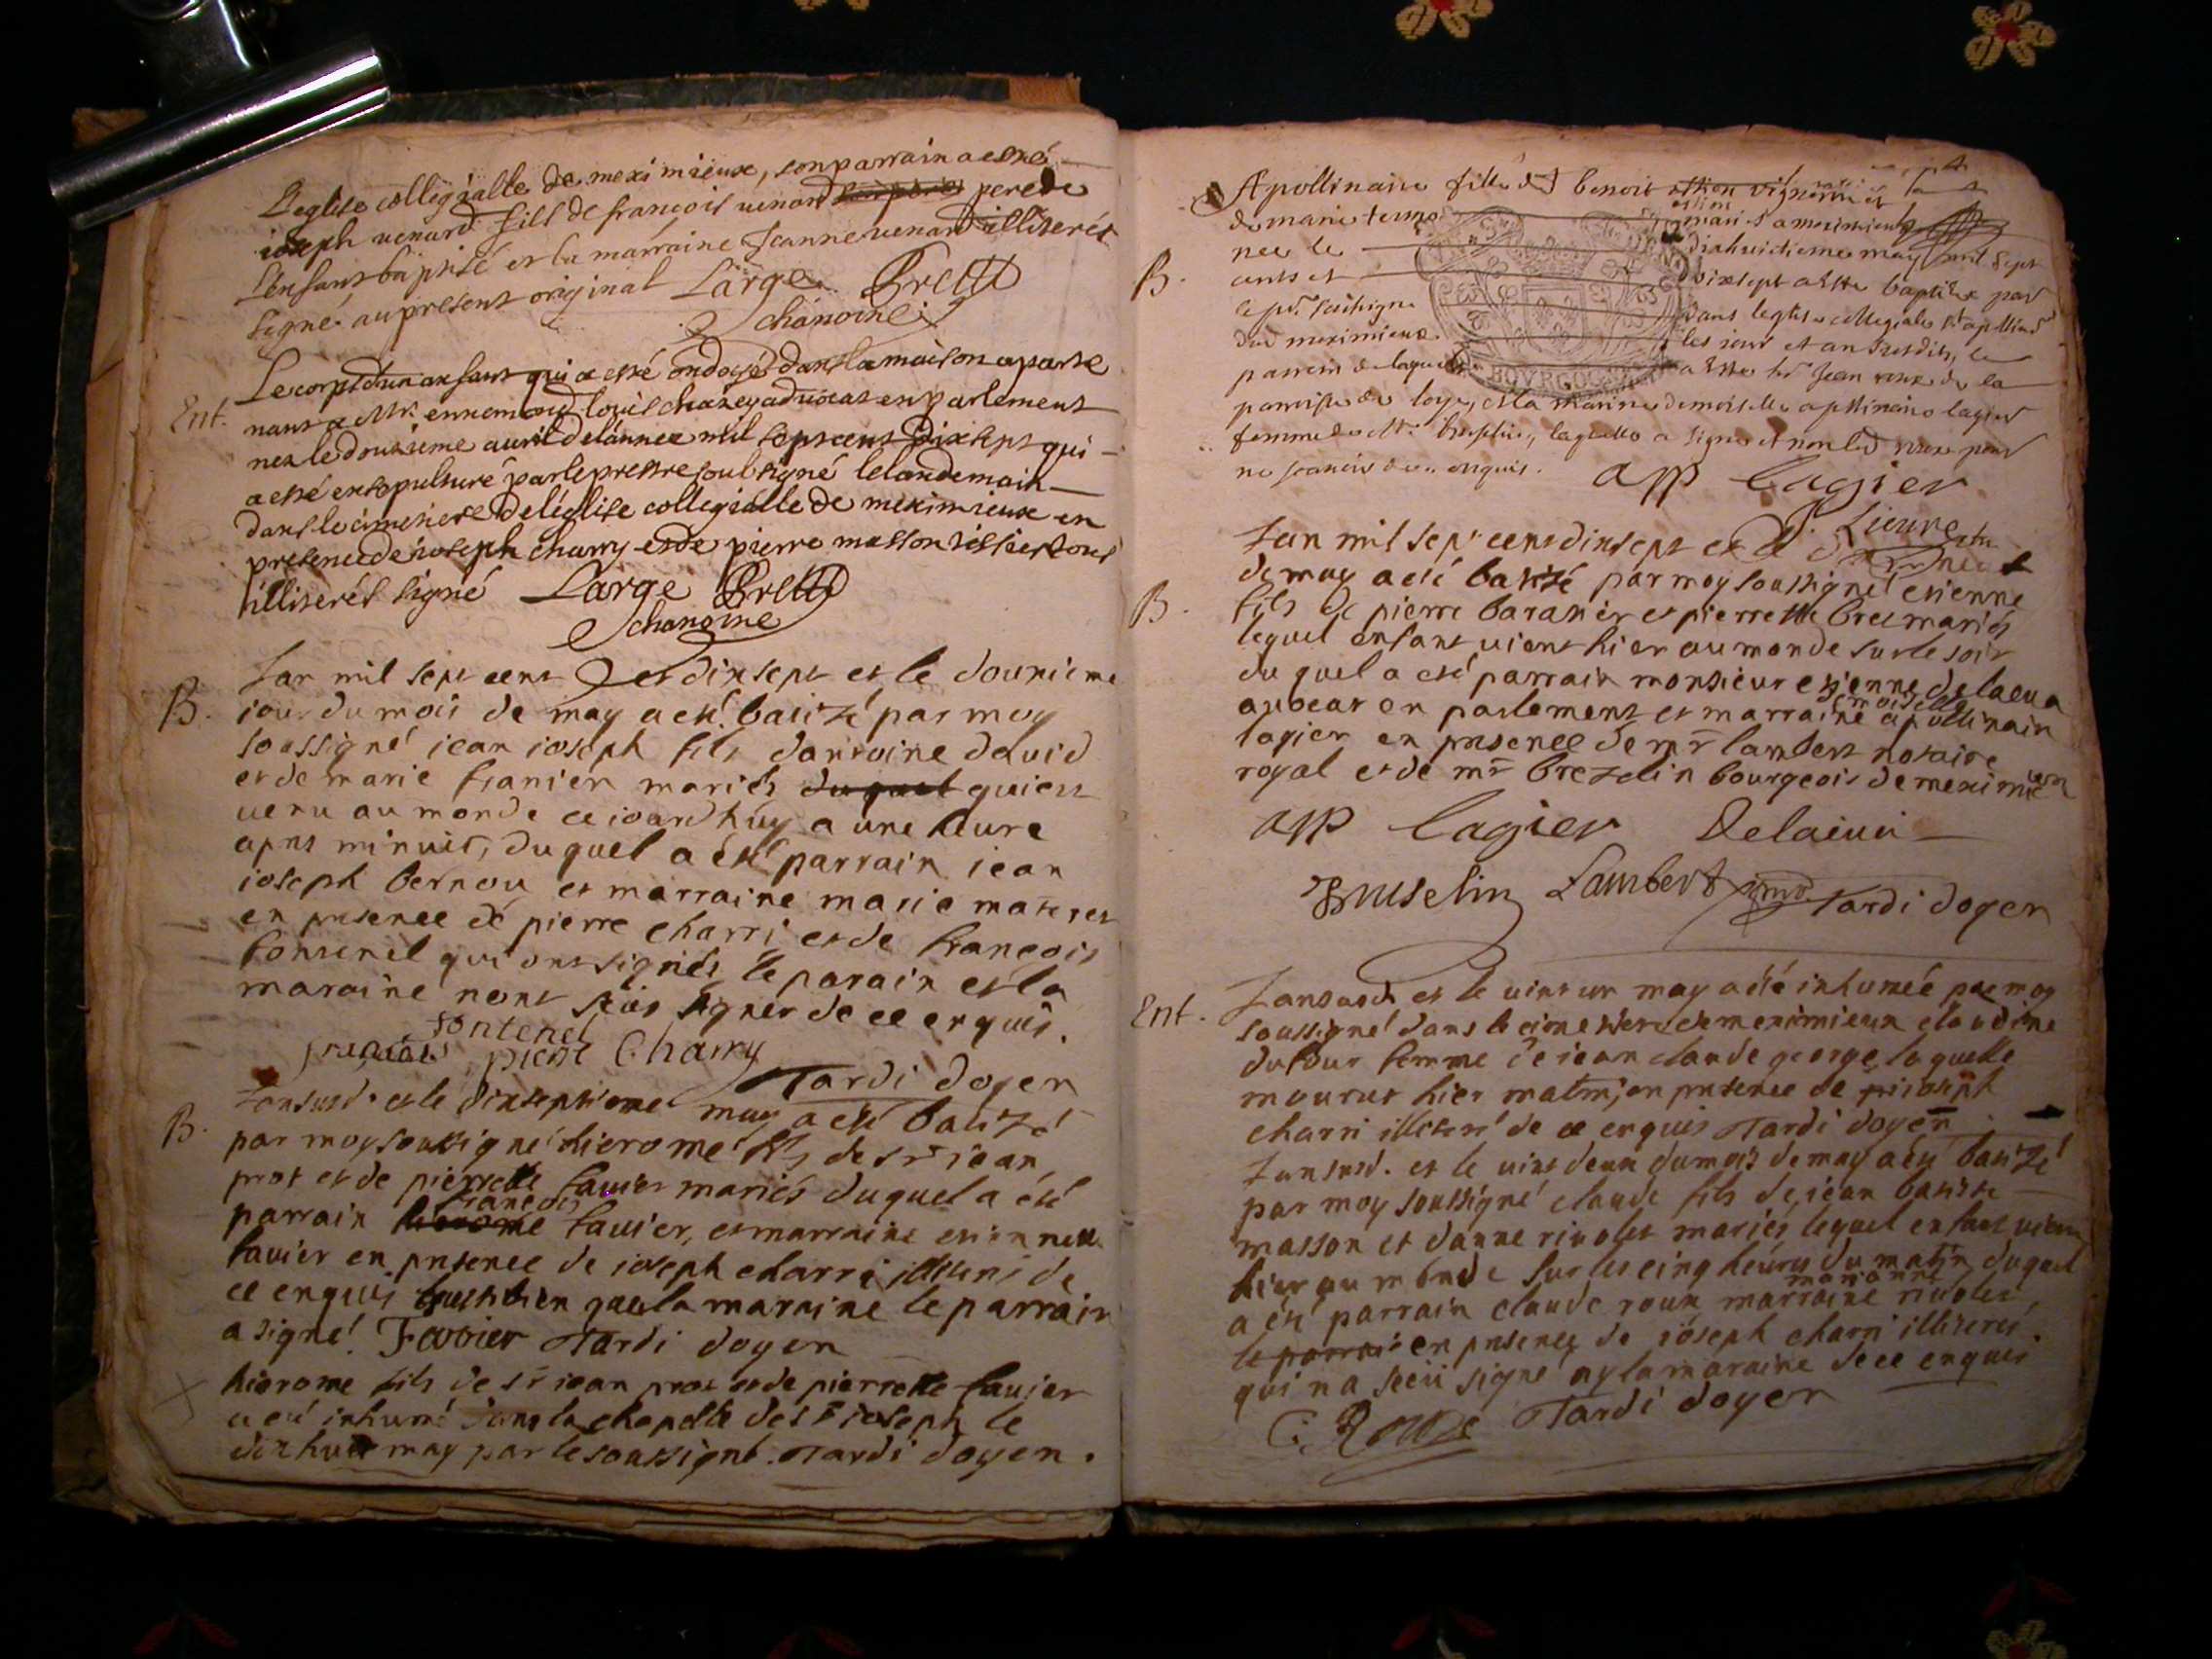 L'eglise collegialle de meximieux, son parrain a esté
ioseph venard fils de françois venard pere de
l'enfant baptisé et la marraine Jeanne venard illiterés
signé au present original Large Pretre
chanoine
Ent. Le corps d'un anfant qui a esté ondoyé dans la maison aparte
nant a Mr. ennemond louis chazey aduocat en parlement
nez le douzieme auril de l'annee mil sept cent dix sept qui
a esté ensepulturé par le prestre soussigné le landemain
dans le cimetiere de l'église collegialle de meximieux en
presence de ioseph charry et de pierre masson tissier tous
illiterés signé Large Pretre
chanoine
B. Lan mil sept cent et dixsept et le douzieme
iour du mois de may a esté batizé par moy
soussigné iean ioseph fils dantoine david
et de marie granier mariés duquel qui est
venu au monde ce iourdhuy a une heure
apres minuit, duquel a esté parrain iean
ioseph bernou et marraine marie
en presence de pierre charri et de françois
fontenel qui ont signés, le parain et la
maraine nont sceu signer de ce enquis.
françois fontenel pierre Charry
Tardi doyen
B. Lansusd. et le dixseptieme may a esté batizé
par moy soussigné hierome fils de sr iean
prost et de pierrette favier mariés duquel a été
françois
parrain hierome favier, et marraine estiennette
favier en presence de ioseph charri illiteré de
ce enquis aussi bien que la maraine le parrain
a signé. Favier Tardi doyen
hierome fils de sr iean prost et de pierrette favier
a été inhumé dans la chapelle de st ioseph le
dixhuit may par le soussigné. Tardi doyen.
Apollinaire fille de benoit
de marie
née le dixhuictieme may mil sept
B. cents et dixsept a esté baptisée par
le pr. soussigné dans leglise collegiale st apllinard
de meximieux les iour et an susdits, le
parrein de laquelle a esté sr Jean roux de la
parroisse de loye, et la marine demoiselle apollinaire lagier
femme de Mr. bruselin, laquelle a signé et non led roux pour
ne scavoir de ce enquis. app lagier
Lieure
Lan mil sept cent dixsept et le
de may a esté batizé par moy soussigné etienne
B. fils de pierre baratier et pierrette bret mariés
lequel enfant vient hier au monde sur le soir
duquel a esté parrain monsieur etienne delaeua
demoiselle
auocat en parlement et marraine apollinair
lagier en presence de mr lambert notaire
royal et de mr brezelin bourgeois de meximieux
app lagier Delaiua
Bruselin Lambert Tardi doyen
Ent. Lansusd. et le vint un may a été inhumée par moy
soussigné dans le cimetiere de meximieux claudine
dufour femme de iean claude george laquelle
mourut hier matin, en presence de ioseph
charri illiteré de ce enquis Tardi doyen
Lansusd. et le vint deux du mois de may a esté batizé
par moy soussigné claude fils de iean batiste
masson et danne riuolet mariés lequel enfant vient
hier au monde sur les cinq heures du matin duquel
marianne
a été parrain claude roux marraine riuolet
le parrain en presence de ioseph charri illiteré.
qui n'a sceu signé ny la maraine de ce enquis
C. Roux Tardi doyen